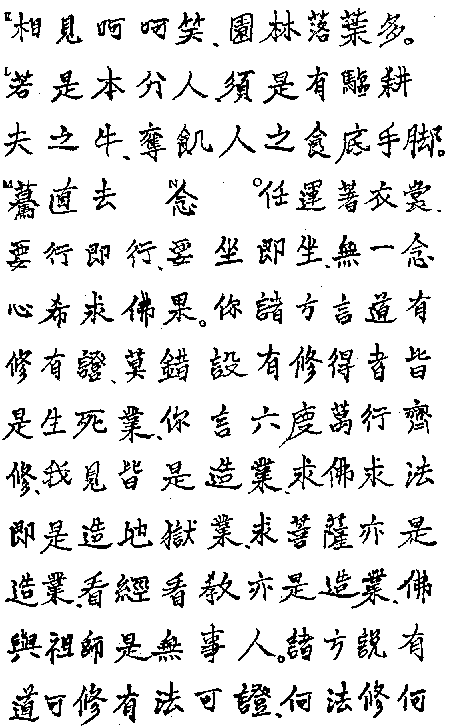 K相見呵呵笑、園林落葉多。
L若是本分人、須是有驅耕
夫之牛、奪飢人之食底手脚。
M驀直去 N念 O任運著衣裳、
要行即行、要坐即坐、無一念
心希求佛果。你諸方言道有
修有證、莫錯設有修得者皆
是生死業、你言六度萬行齊
修、我見皆是造業、求佛求法
即是造地獄業、求菩薩亦是
造業、看經看教亦是造業、佛
與祖師是無事人。諸方說有
道可修有法可證、何法修何